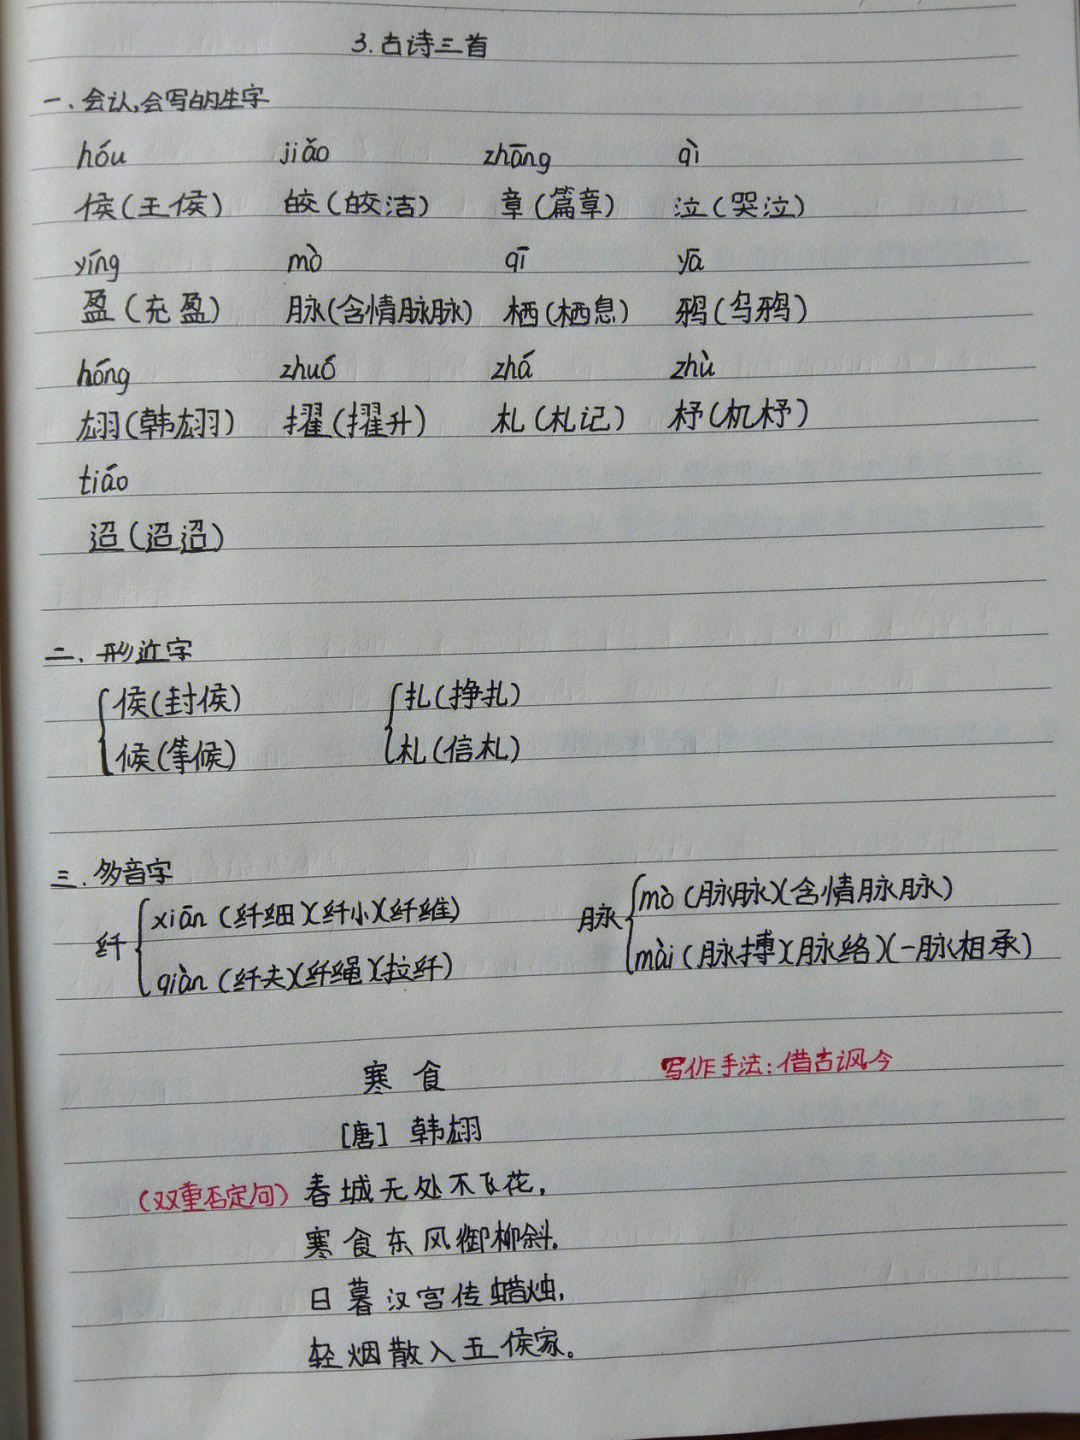 3.古诗三首
一、会认,会写的生字
hóu jiǎo zhāng qì
侯(王侯) 皎(皎洁) 章(篇章) 泣(哭泣)
yíng mò qī yā
盈(充盈) 脉(含情脉脉) 栖(栖息) 鸦(乌鸦)
hóng zhuó zhá zhù
翃(韩翃) 擢(擢升) 札(札记) 杼(机杼)
tiáo
迢(迢迢)
二、形近字
侯(封侯) 扎(挣扎)
候(等候) 札(信札)
三.多音字
纤 xiān(纤细)(纤小)(纤维) 脉 mò(脉脉)(含情脉脉)
qiàn(纤夫)(纤绳)(拉纤) mài(脉搏)(脉络)(一脉相承)
寒食 写作手法:借古讽今
[唐] 韩翃
(双重否定句) 春城无处不飞花,
寒食东风御柳斜.
日暮汉宫传蜡烛,
轻烟散入五侯家。